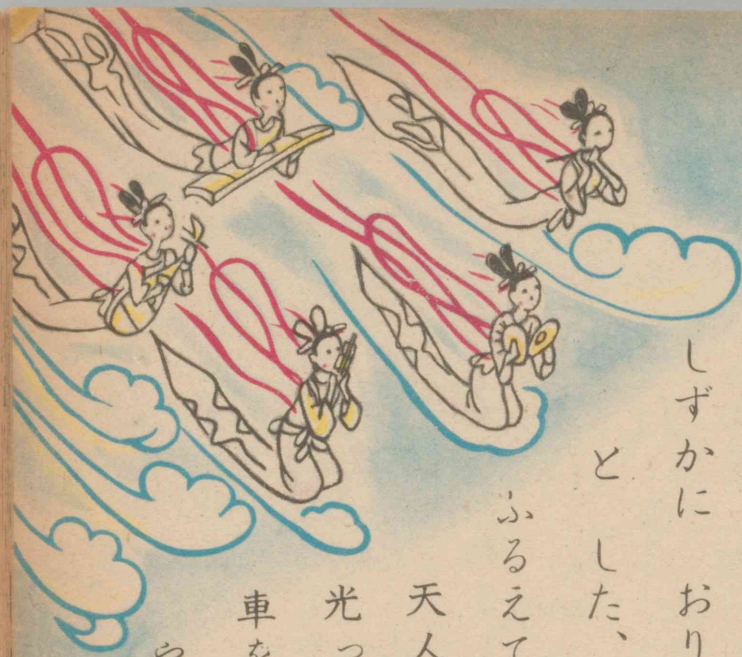 しずかに おり
と した、
ふるえて
天人
光っ
車を